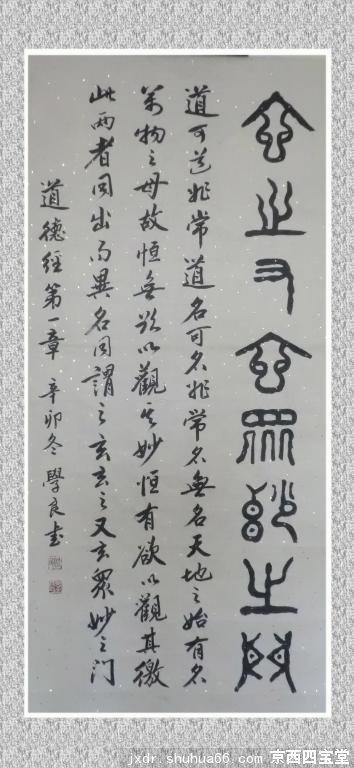 玄之又玄眾妙之門
道可道非常道名可名非常名無名天地之始有名
萬物之母故恒無欲以觀其妙恒有欲以觀其徼
此两者同出而異名同謂之玄玄之又玄眾妙之门
道德經第一章 辛卯冬 學良書
jxdr.shuhua66.com 京西四宝堂